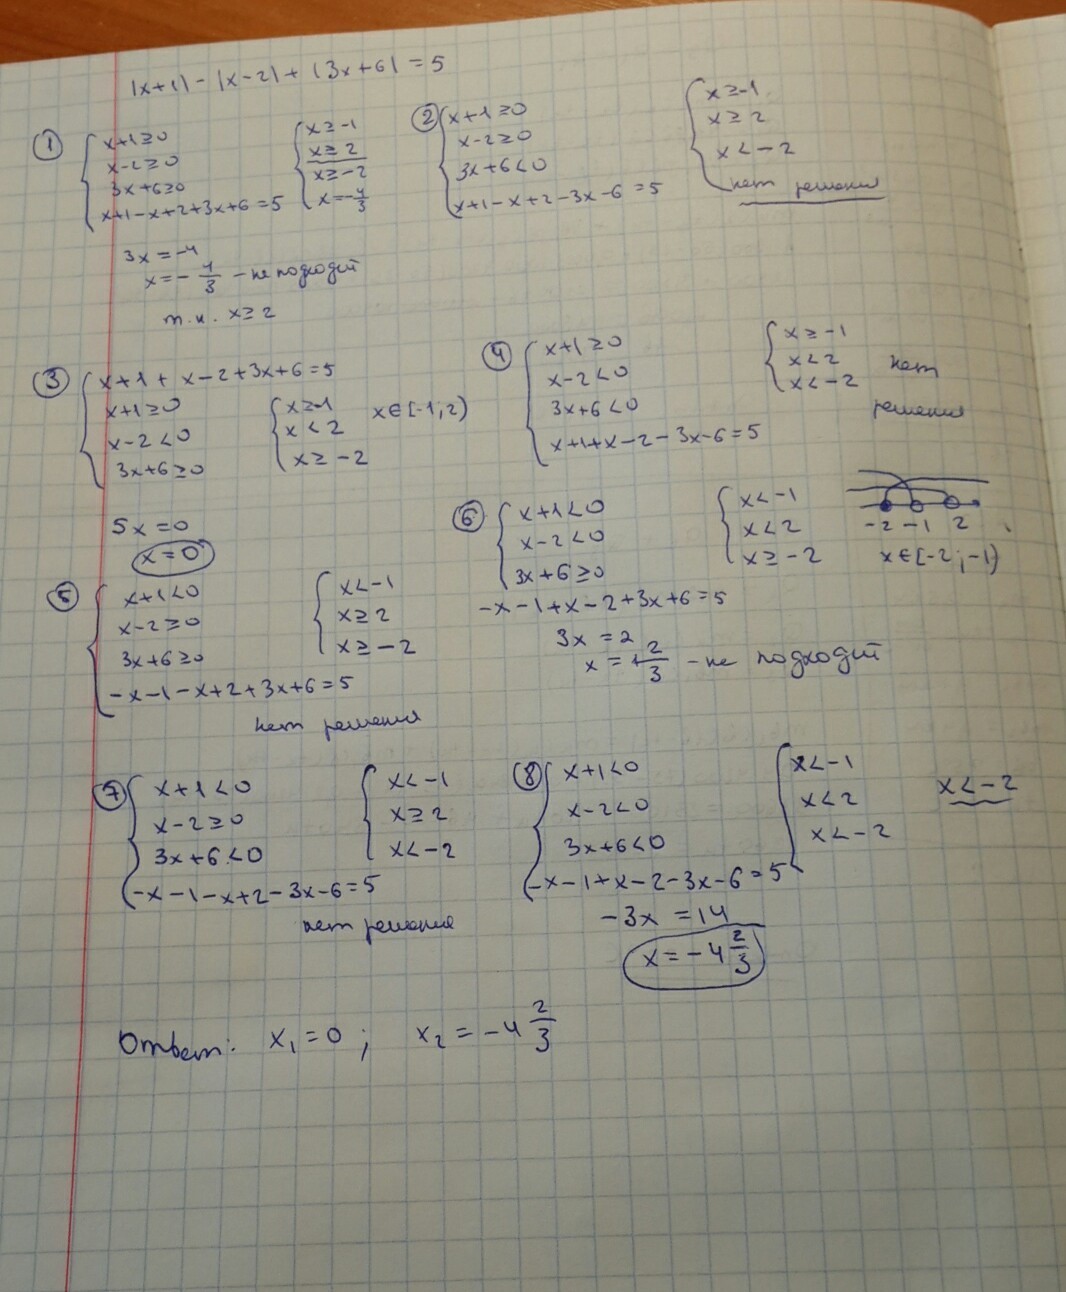 |x+1| - |x-2| + |3x+6| = 5
① x+1≥0
x-2≥0
3x+6≥0
x+1-x+2+3x+6=5
x≥-1
x≥2
x≥-2
x=-4/3
3x=-4
x=-4/3 - не подходит
т.к. x≥2
② x+1≥0
x-2≥0
3x+6<0
x+1-x+2-3x-6=5
x≥-1
x≥2
x<-2
нет решения
③ x+1+x-2+3x+6=5
x+1≥0
x-2<0
3x+6≥0
x≥-1
x<2
x≥-2
x∈[-1;2)
5x=0
x=0
④ x+1≥0
x-2<0
3x+6<0
x+1+x-2-3x-6=5
x≥-1
x<2
x<-2
нет
решения
⑤ x+1<0
x-2≥0
3x+6≥0
-x-1-x+2+3x+6=5
x<-1
x≥2
x≥-2
нет решения
⑥ x+1<0
x-2<0
3x+6≥0
-x-1+x-2+3x+6=5
x<-1
x<2
x≥-2
-2 -1 2
x∈[-2;-1)
3x=2
x=2/3 - не подходит
⑦ x+1<0
x-2≥0
3x+6<0
-x-1-x+2-3x-6=5
x<-1
x≥2
x<-2
нет решения
⑧ x+1<0
x-2<0
3x+6<0
-x-1+x-2-3x-6=5
x<-1
x<2
x<-2
x<-2
-3x=14
x=-4 2/3
Ответ: x₁=0; x₂=-4 2/3